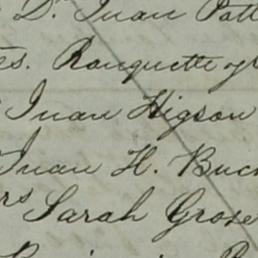 Dr. Juan Patt
es. Ronquette y
Juan Higson
Juan H. Buck
rs Sarah Grose